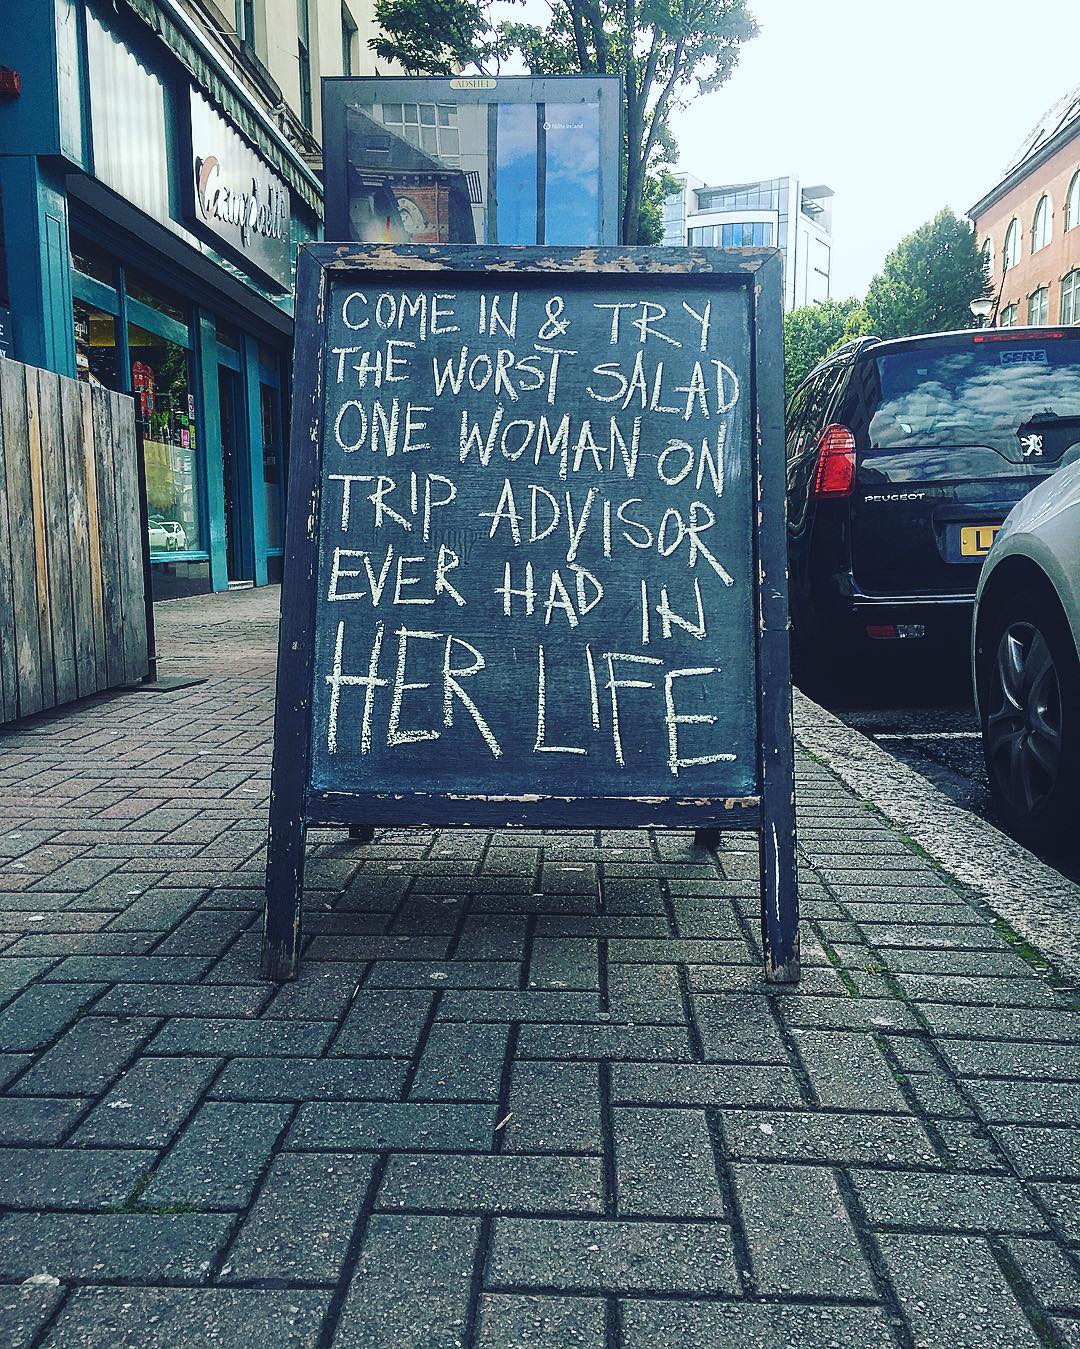 ADSHEL
Campbell's
COME IN & TRY
THE WORST SALAD
ONE WOMAN ON
TRIP ADVISOR
EVER HAD IN
HER LIFE
SERE
PEUGEOT